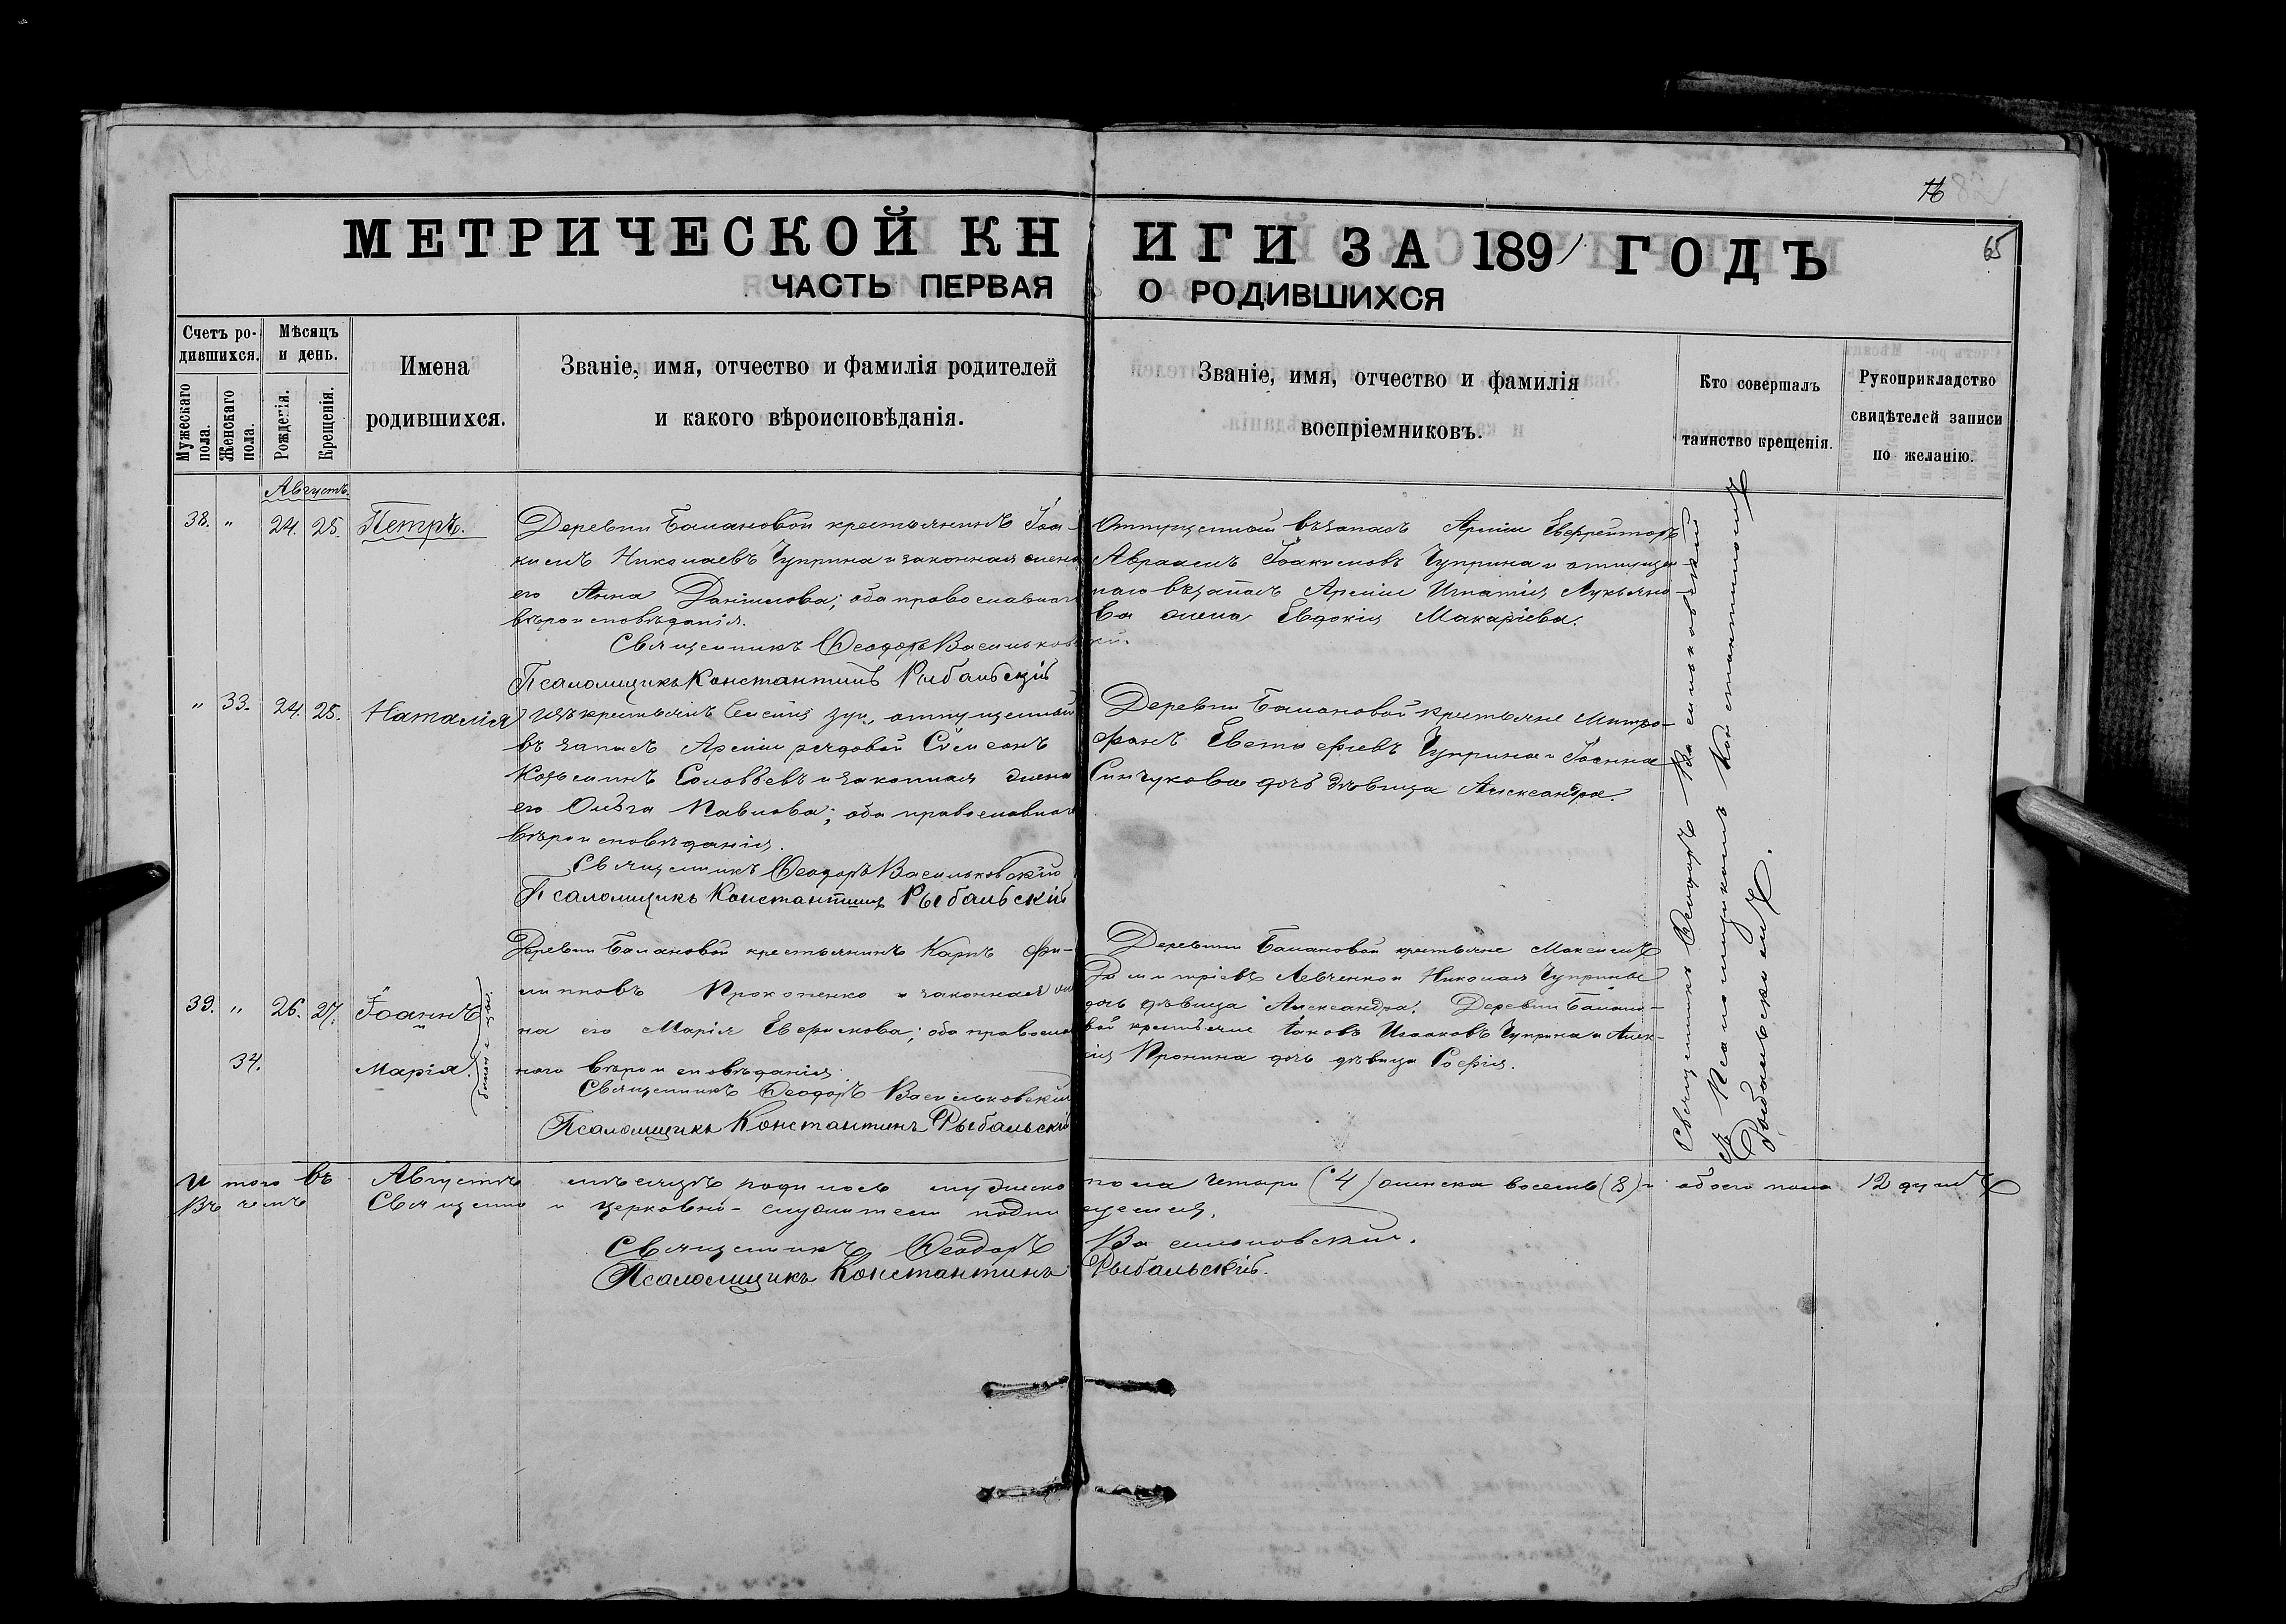 16
65
МЕТРИЧЕСКОЙ КНИГИ ЗА 1891 ГОДЪ
ЧАСТЬ ПЕРВАЯ О РОДИВШИХСЯ
Счетъ ро-
дившихся.
Мужескаго пола.
Женскаго пола.
Мѣсяцъ
и день.
Рожденія.
Крещенія.
Имена
родившихся.
Званіе, имя, отчество и фамилія родителей
и какого вѣроисповѣданія.
Званіе, имя, отчество и фамилія
воспріемниковъ.
Кто совершалъ
таинство крещенія.
Рукоприкладство
свидѣтелей записи
по желанію.
Августъ.
38. " 24. 25. Петръ.
Деревни Балановой крестьянинъ Іоа-
кимъ Николаевъ Чуприна и законная жена
его Анна Даніилова; оба православнаго
вѣроисповѣданія.
Священникъ Ѳеодоръ Васильковскій.
Псаломщикъ Константинъ Рыбальскій
Отпущенный въ запасъ Арміи Ефрейторъ
Авраамъ Іоакимовъ Чуприна и отпущен
наго въ запасъ Арміи Игнатія Лукьяно-
ва жена Евдокія Макаріева.
" 33. 24. 25. Наталія
Изъ крестьянъ отпущенный
въ запасъ Арміи рядовой Сѵмеонъ
Козьминъ Соловьевъ и законная жена
его Ольга Павлова; оба православнаго
вѣроисповѣданія.
Священникъ Ѳеодоръ Васильковскій
Псаломщикъ Константинъ Рыбальскій
Деревни Балановой крестьяне Митро-
фанъ Евстафіевъ Чуприна и Іоанна
Синчукова дочь дѣвица Александра.
39. " 26. 27. Іоаннъ
34. Марія.
близнецы.
Деревни Балановой крестьянинъ Карпъ Фи-
липповъ Прокопенко и законная же
на его Марія Евфимова; оба православ
наго вѣроисповѣданія.
Священникъ Ѳеодоръ Васильковскій
Псаломщикъ Константинъ Рыбальскій
Деревни Балановой крестьяне Максимъ
Димитріевъ Левченко и Николая Чуприны
дочь дѣвица Александра. Деревни Балано-
вой крестьяне Іаковъ Исааковъ Чуприна и Алек-
сія Пронина дочь дѣвица Софія.
Священникъ Ѳеодоръ Васильковскій
съ Псаломщикомъ Константиномъ
Рыбальскимъ.
Итого въ Августѣ мѣсяцѣ родилось мужеска пола четыри (4) женска восемь (8) и обоего пола 12 душъ
Въ чемъ Священно и церковно-служители подписуемся.
Священникъ Ѳеодоръ Васильковскій.
Псаломщикъ Константинъ Рыбальскій.